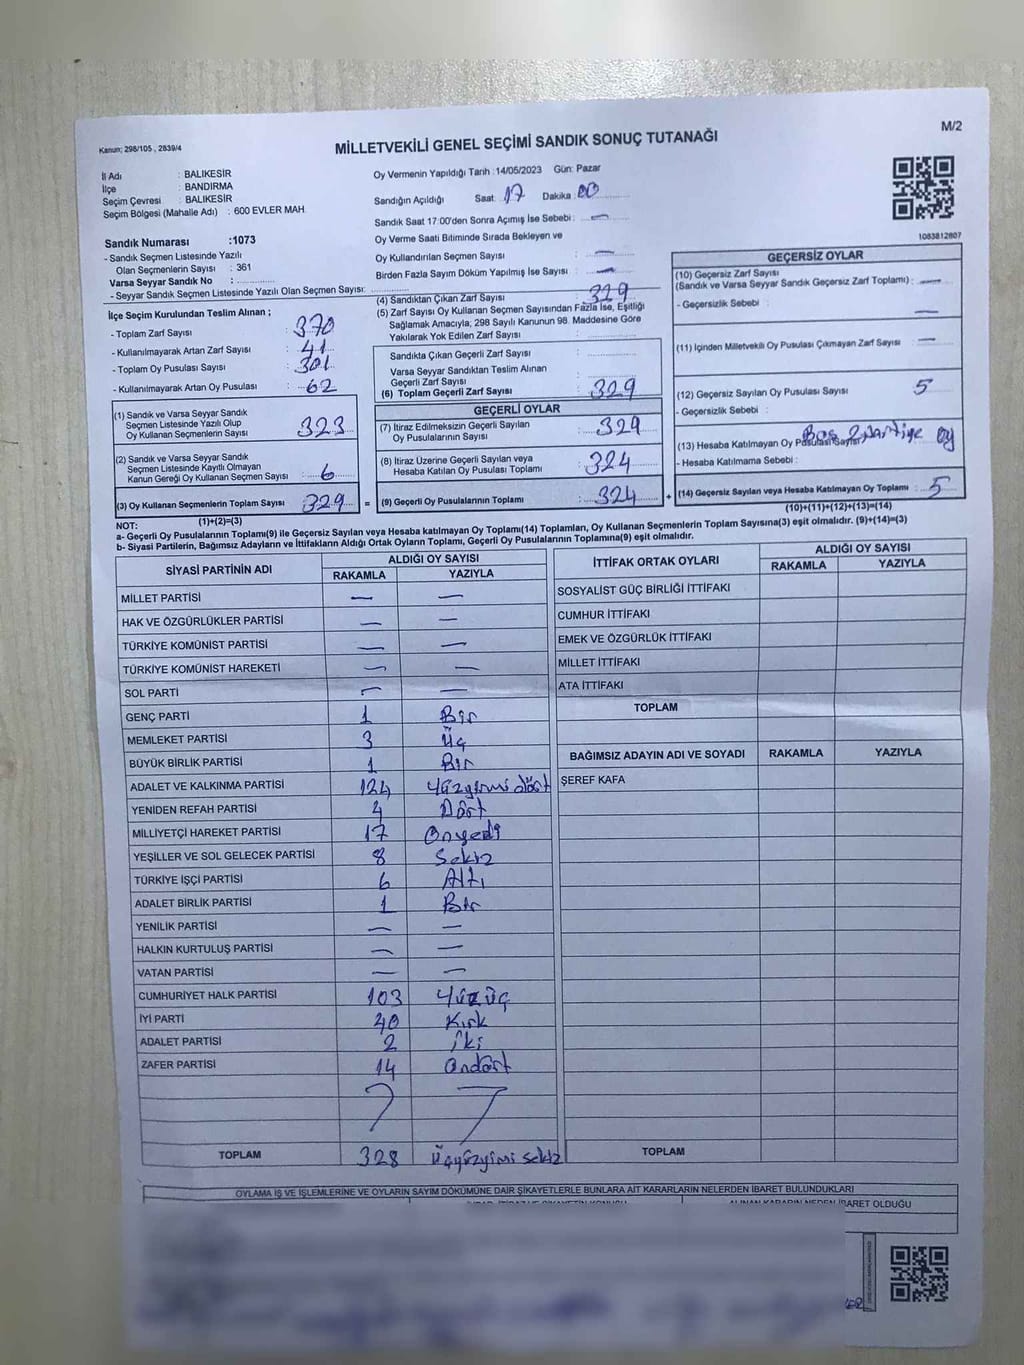 Kanun; 298/105 , 2839/4
MİLLETVEKİLİ GENEL SEÇİMİ SANDIK SONUÇ TUTANAĞI
M/2
İl Adı : BALIKESİR
İlçe : BANDIRMA
Seçim Çevresi : BALIKESİR
Seçim Bölgesi (Mahalle Adı) : 600 EVLER MAH.
Sandık Numarası :1073
- Sandık Seçmen Listesinde Yazılı
Olan Seçmenlerin Sayısı : 361
Varsa Seyyar Sandık No :
- Seyyar Sandık Seçmen Listesinde Yazılı Olan Seçmen Sayısı:
Oy Vermenin Yapıldığı Tarih :14/05/2023 Gün: Pazar
Sandığın Açıldığı Saat 17 Dakika 00
Sandık Saat 17:00'den Sonra Açımış İse Sebebi : —
Oy Verme Saati Bitiminde Sırada Bekleyen ve
Oy Kullandırılan Seçmen Sayısı : —
Birden Fazla Sayım Döküm Yapılmış İse Sayısı : —
1083812807
İlçe Seçim Kurulundan Teslim Alınan ;
- Toplam Zarf Sayısı : 370
- Kullanılmayarak Artan Zarf Sayısı : 41
- Toplam Oy Pusulası Sayısı : 301
- Kullanılmayarak Artan Oy Pusulası : 62
(1) Sandık ve Varsa Seyyar Sandık
Seçmen Listesinde Yazılı Olup
Oy Kullanan Seçmenlerin Sayısı : 323
(2) Sandık ve Varsa Seyyar Sandık
Seçmen Listesinde Kayıtlı Olmayan
Kanun Gereği Oy Kullanan Seçmen Sayısı : 6
(3) Oy Kullanan Seçmenlerin Toplam Sayısı : 329
(4) Sandıktan Çıkan Zarf Sayısı : 329
(5) Zarf Sayısı Oy Kullanan Seçmen Sayısından Fazla İse, Eşitliği
Sağlamak Amacıyla; 298 Sayılı Kanunun 98. Maddesine Göre
Yakılarak Yok Edilen Zarf Sayısı :
Sandıkta Çıkan Geçerli Zarf Sayısı :
Varsa Seyyar Sandıktan Teslim Alınan
Geçerli Zarf Sayısı :
(6) Toplam Geçerli Zarf Sayısı : 329
GEÇERLİ OYLAR
(7) İtiraz Edilmeksizin Geçerli Sayılan
Oy Pusulalarının Sayısı : 329
(8) İtiraz Üzerine Geçerli Sayılan veya
Hesaba Katılan Oy Pusulası Toplamı : 324
= (9) Geçerli Oy Pusulalarının Toplamı : 324
GEÇERSİZ OYLAR
(10) Geçersiz Zarf Sayısı
(Sandık ve Varsa Seyyar Sandık Geçersiz Zarf Toplamı) : —
- Geçersizlik Sebebi : —
(11) İçinden Milletvekili Oy Pusulası Çıkmayan Zarf Sayısı : —
(12) Geçersiz Sayılan Oy Pusulası Sayısı : 5
- Geçersizlik Sebebi :
Boş 2 Partiye oy
(13) Hesaba Katılmayan Oy Pusulası Sayısı
- Hesaba Katılmama Sebebi :
+ (14) Geçersiz Sayılan veya Hesaba Katılmayan Oy Toplamı : 5
(1)+(2)=(3)
(10)+(11)+(12)+(13)=(14)
NOT:
a- Geçerli Oy Pusulalarının Toplamı(9) ile Geçersiz Sayılan veya Hesaba katılmayan Oy Toplamı(14) Toplamları, Oy Kullanan Seçmenlerin Toplam Sayısına(3) eşit olmalıdır. (9)+(14)=(3)
b- Siyasi Partilerin, Bağımsız Adayların ve İttifakların Aldığı Ortak Oyların Toplamı, Geçerli Oy Pusulalarının Toplamına(9) eşit olmalıdır.
SİYASİ PARTİNİN ADI ALDIĞI OY SAYISI
RAKAMLA YAZIYLA
MİLLET PARTİSİ — —
HAK VE ÖZGÜRLÜKLER PARTİSİ — —
TÜRKİYE KOMÜNİST PARTİSİ — —
TÜRKİYE KOMÜNİST HAREKETİ — —
SOL PARTİ — —
GENÇ PARTİ 1 Bir
MEMLEKET PARTİSİ 3 Üç
BÜYÜK BİRLİK PARTİSİ 1 Bir
ADALET VE KALKINMA PARTİSİ 124 Yüzyirmi dört
YENİDEN REFAH PARTİSİ 4 Dört
MİLLİYETÇİ HAREKET PARTİSİ 17 Onyedi
YEŞİLLER VE SOL GELECEK PARTİSİ 8 Sekiz
TÜRKİYE İŞÇİ PARTİSİ 6 Altı
ADALET BİRLİK PARTİSİ 1 Bir
YENİLİK PARTİSİ — —
HALKIN KURTULUŞ PARTİSİ — —
VATAN PARTİSİ — —
CUMHURİYET HALK PARTİSİ 103 Yüzüç
İYİ PARTİ 40 Kırk
ADALET PARTİSİ 2 İki
ZAFER PARTİSİ 14 Ondört
TOPLAM 328 Üçyüzyimi sekiz
İTTİFAK ORTAK OYLARI ALDIĞI OY SAYISI
RAKAMLA YAZIYLA
SOSYALİST GÜÇ BİRLİĞİ İTTİFAKI
CUMHUR İTTİFAKI
EMEK VE ÖZGÜRLÜK İTTİFAKI
MİLLET İTTİFAKI
ATA İTTİFAKI
TOPLAM
BAĞIMSIZ ADAYIN ADI VE SOYADI RAKAMLA YAZIYLA
ŞEREF KAFA
TOPLAM
OYLAMA İŞ VE İŞLEMLERİNE VE OYLARIN SAYIM DÖKÜMÜNE DAİR ŞİKAYETLERLE BUNLARA AİT KARARLARIN NELERDEN İBARET BULUNDUKLARI
ALINAN KARARIN NEDEN İBARET OLDUĞU